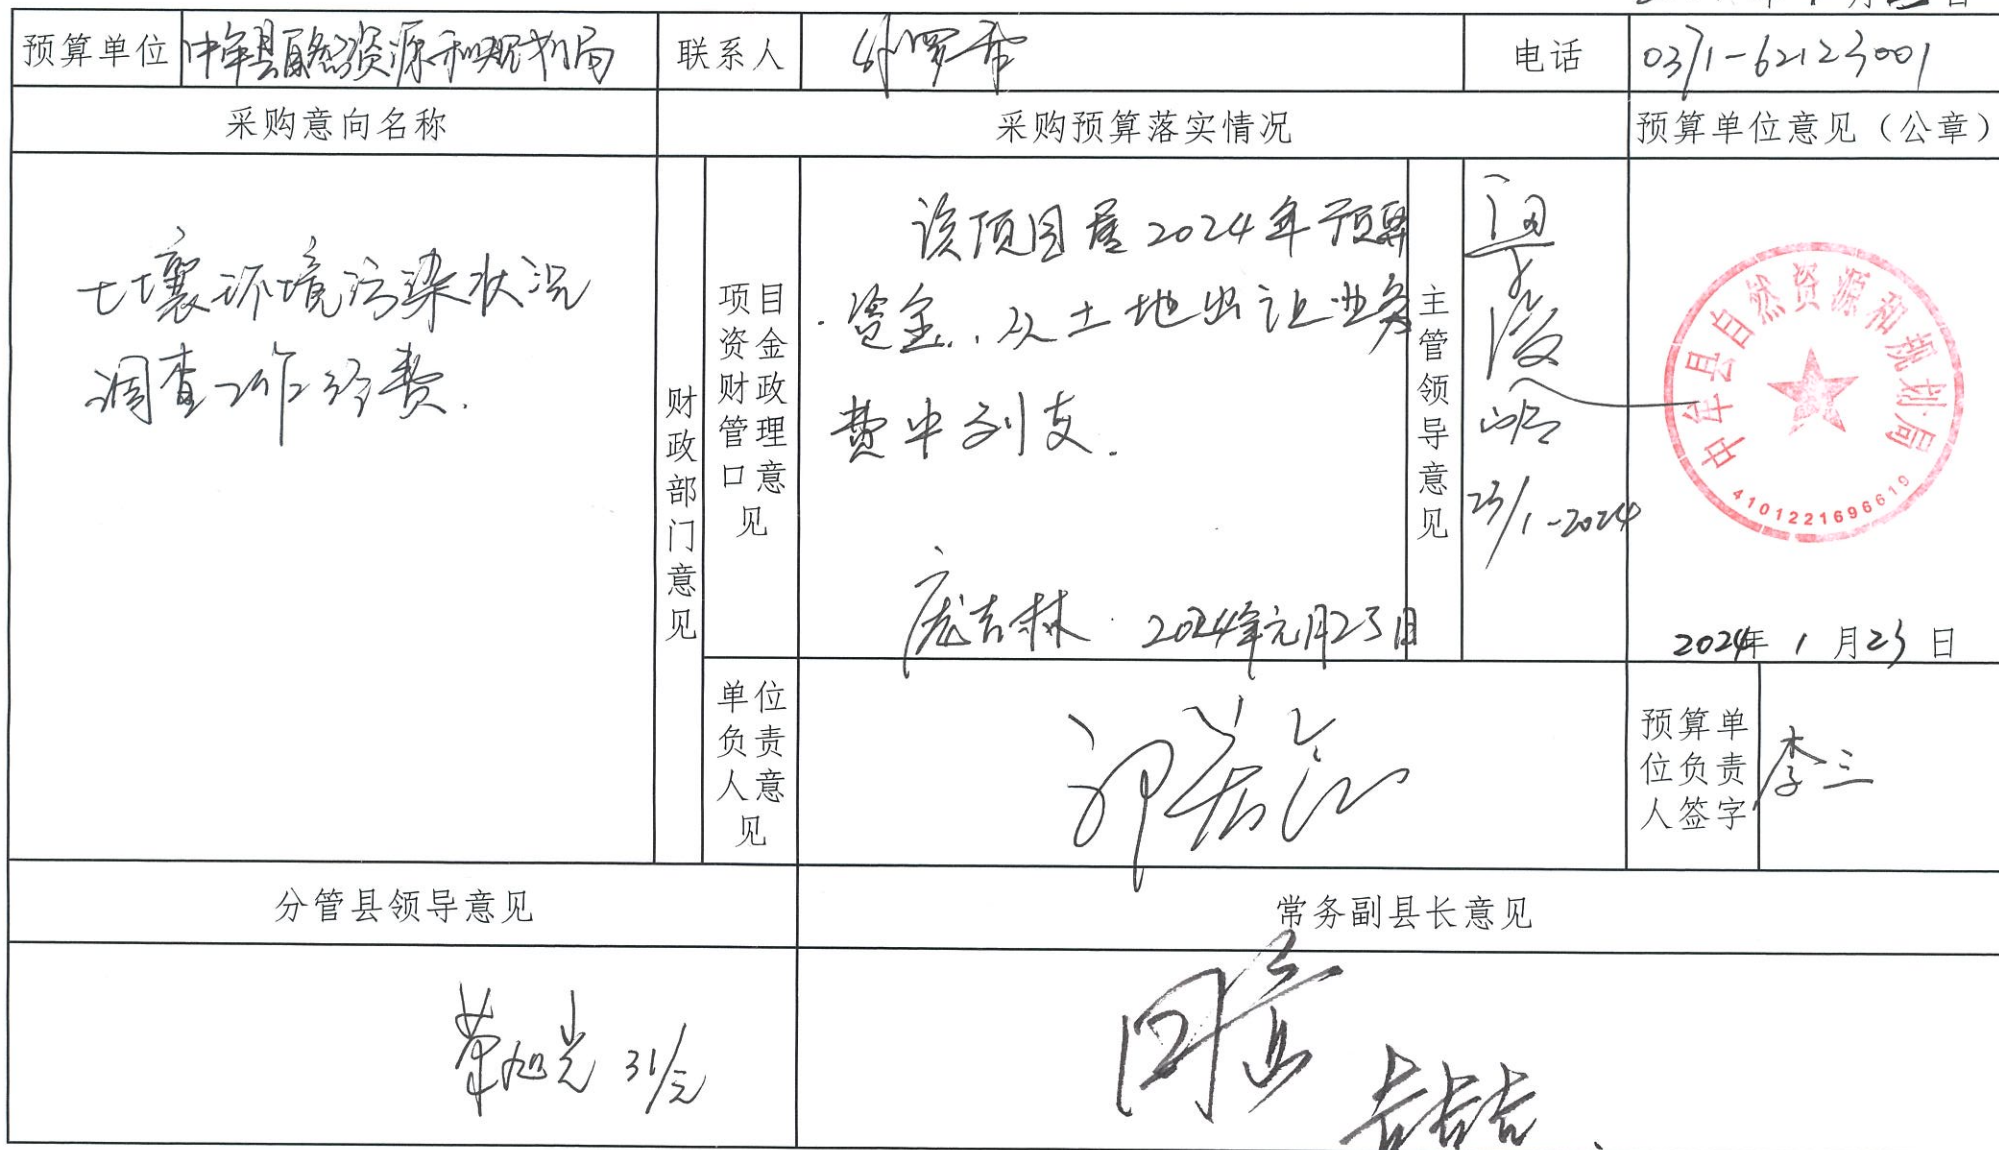 年 1 月 日
预算单位 中牟县自然资源和规划局 联系人 电话 0371-62123001
采购意向名称 采购预算落实情况 预算单位意见（公章）
土壤环境污染状况
调查工作经费.
财政部门意见
项目资金财政管理口意见
该项目属2024年预算
资金.,从土地出让业务
费中列支.
庞吉林 2024年元月23日
主管领导意见
23/1-2024
中牟县自然资源和规划局
4101221696619
2024年 1 月 23 日
单位负责人意见
预算单位负责人签字
李三
分管县领导意见 常务副县长意见
旭光 31/元
同意